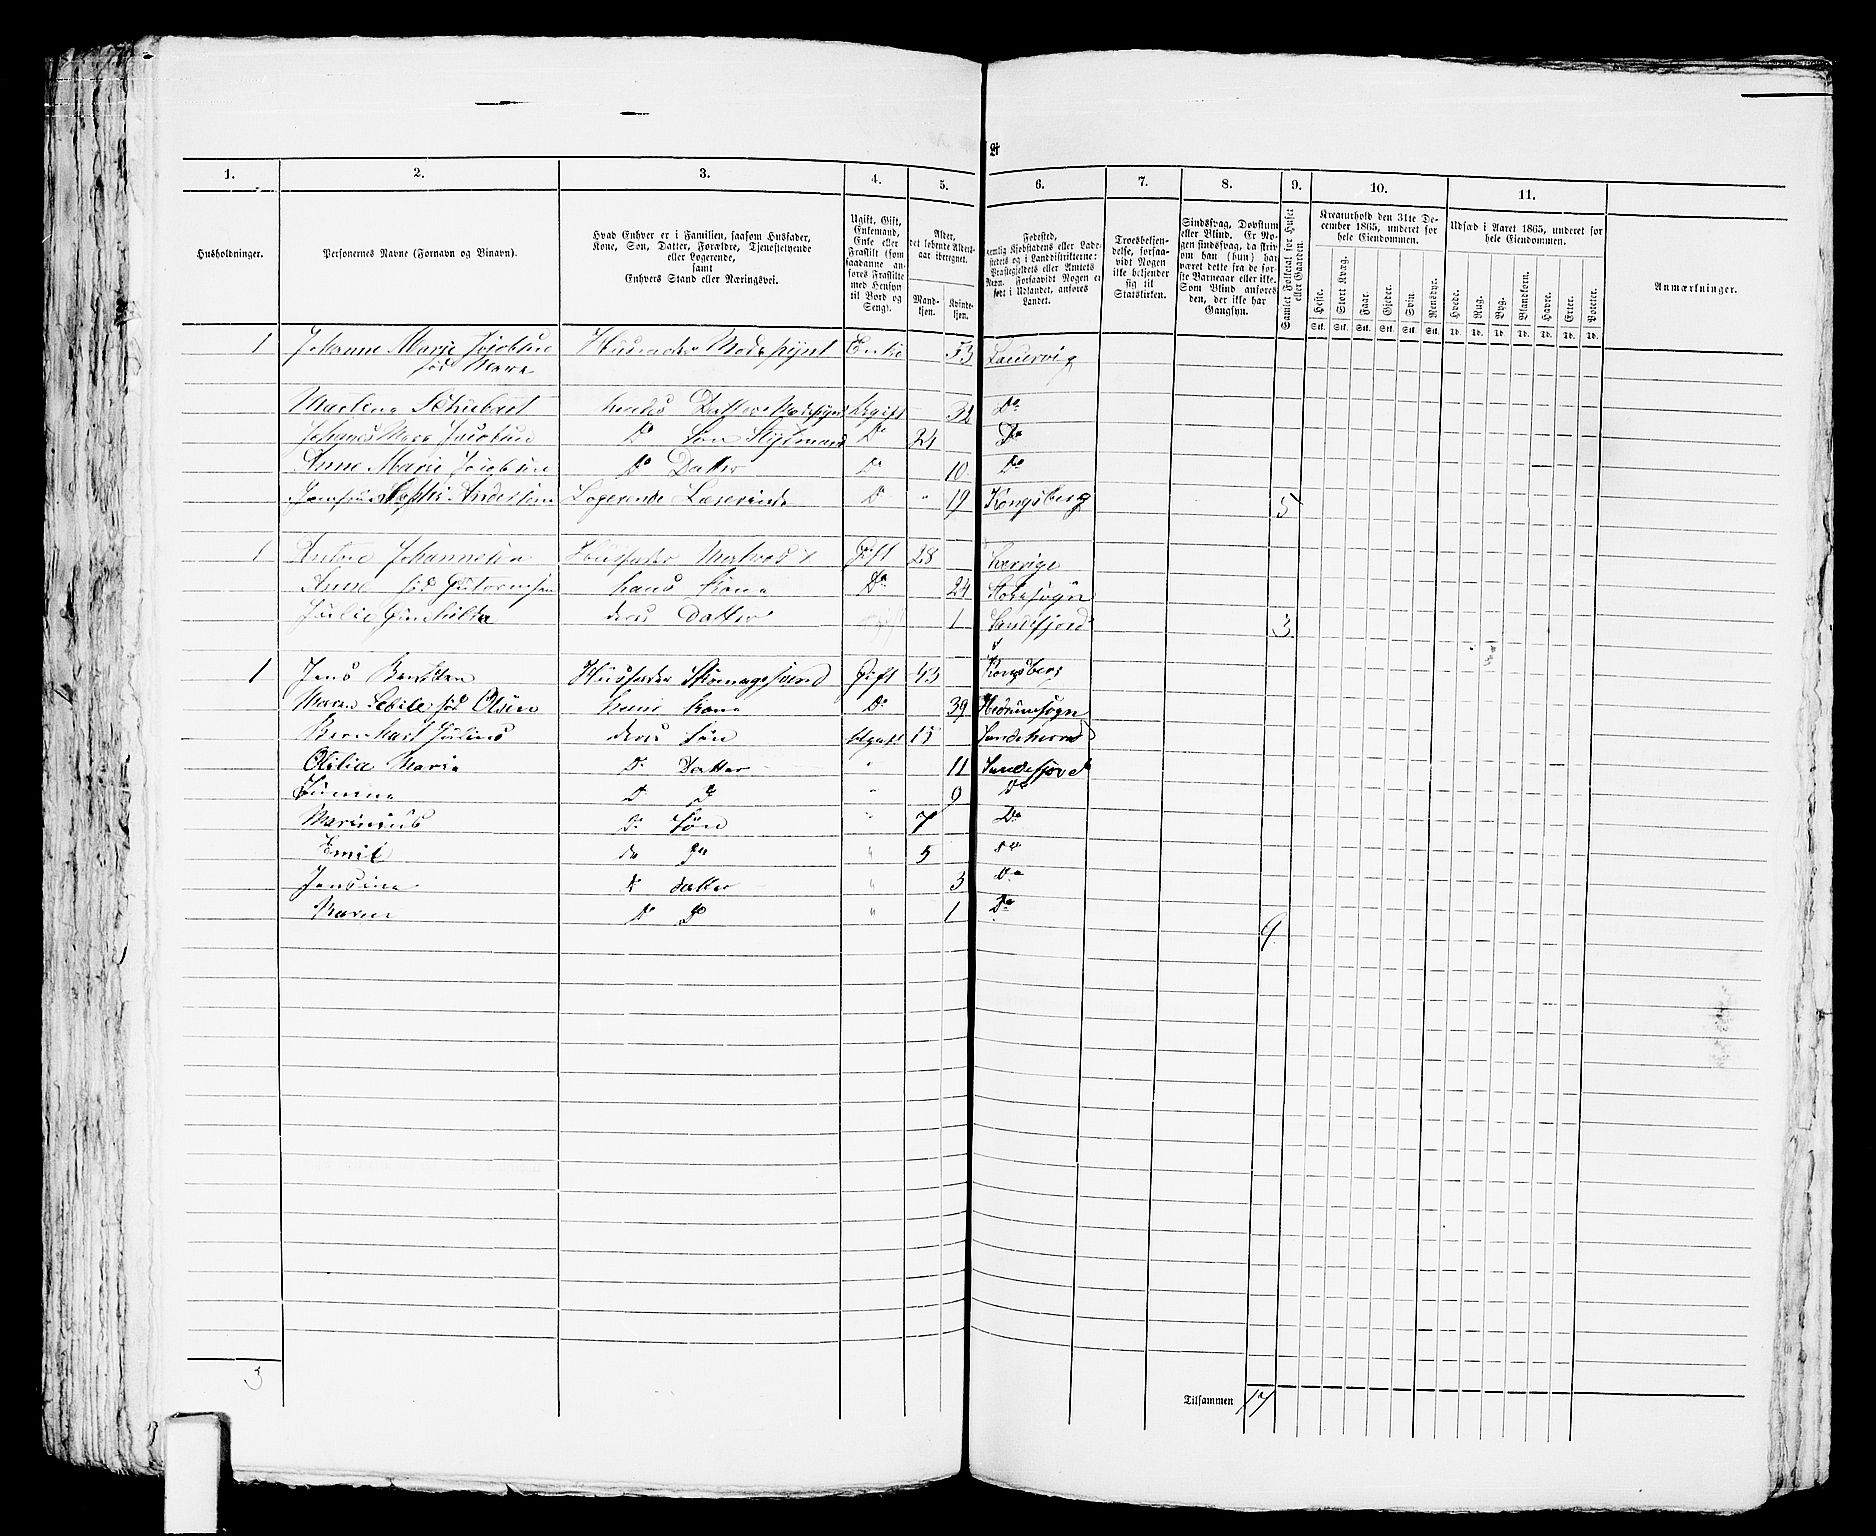 1. 2. 3. 4. 5. 6. 7. 8. 9. 10. 11.
Husholdninger.
Personernes Navne (Fornavn og Binavn).
Hvad Enhver er i Familien, saasom Husfader,
Kone, Søn, Datter, Forældre, Tjenestetyende
eller Logerende,
samt
Enhvers Stand eller Næringsvei.
Ugift, Gift,
Enkemand,
Enke eller
Fraskilt (som
saadanne an-
føres Fraskilte
med Hensyn
til Bord og
Seng).
Alder,
det løbende Alders-
aar iberegnet.
Mand-
kjøn.
Kvinde-
kjøn.
Fødested,
nemlig Kjøbstadens eller Lade-
stedets og i Landdistrikterne:
Præstegjeldets eller Amtets
Navn. Forsaavidt Nogen er
født i Udlandet, anføres
Landet.
Troesbekjen-
delse, forsaa-
vidt Nogen
ikke bekjender
sig til
Statskirken.
Sindssvag, Døvstum
eller Blind. Er No-
gen sindssvag, da skriv
om han (hun) har
været dette fra de før-
ste Barneaar eller ikke.
Som Blind anføres
den, der ikke har
Gangsyn.
Samlet Folketal for Huset
eller Gaarden.
Kreaturhold den 31te De-
cember 1865, underet for
hele Eiendommen.
Heste. Stort Kvæg. Faar. Gjeder. Svin. Rensdyr.
Stk. Stk. Stk. Stk. Stk. Stk.
Udsæd i Aaret 1865, underet for
hele Eiendommen.
Hvede. Rug. Byg. Blandkorn. Havre. Erter. Poteter.
Td. Td. Td. Td. Td. Td. Td.
Anmærkninger.
1 Johanne Marie Jacobsen Enke 53 Laurvig
født
Schubart Datter Ugift 32 Do
Johanes Jacobsen Do Søn Styrmand Do 24 Do
Anne Marie Jacobsen Do Datter Do 10 Do
Andersen Logerende Læserinde Do " 19 Kongsberg 5
1 Johannesen Husfader Matros Gift 28 Sverige
Anne fød hans Kone Do 24 Stokesogn
Julie deres Datter 1 Sandefjord 3
1 Jens Husfader Skomagersvend Gift 43 Kongsberg
Maren fød Olsen Kone Do 39 Hedrumsogn
Bernhart Julius deres Søn Ugift 15
Otilia Marie Do Datter " 11 Sandefjord
Do Do " 9 Do
Marinius Do Søn " 7 Do
Emil do Do " 5 Do
Jensine D datter " 3 Do
Karen Do Do " 1 Do
9
3
Tilsammen 17